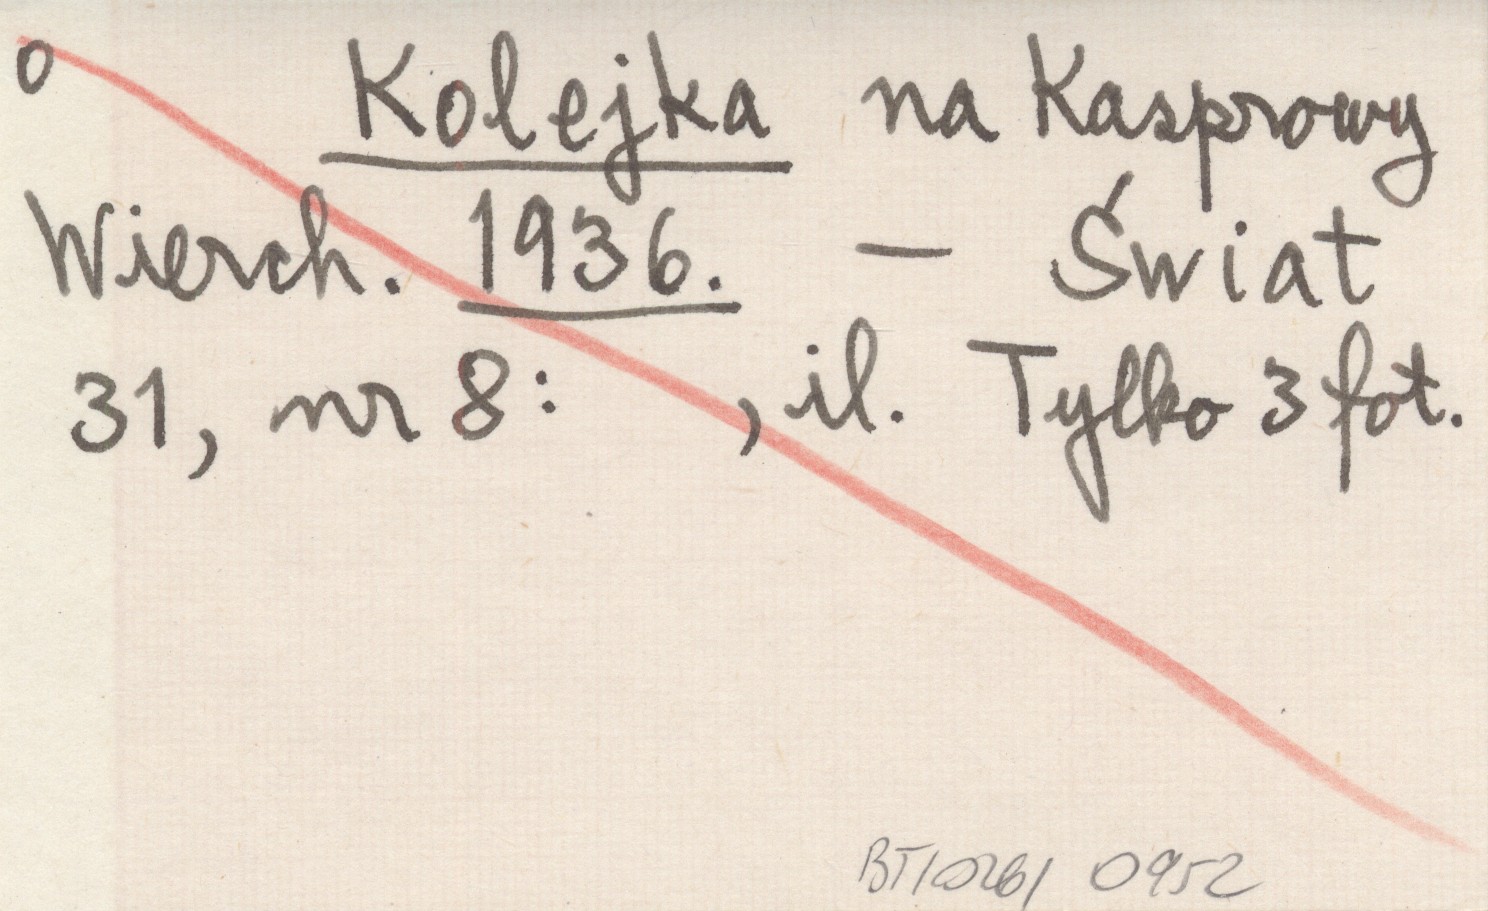 o Kolejka na Kasprowy
Wierch. 1936. — Świat
31, nr 8: , il. Tylko 3 fot.
0952